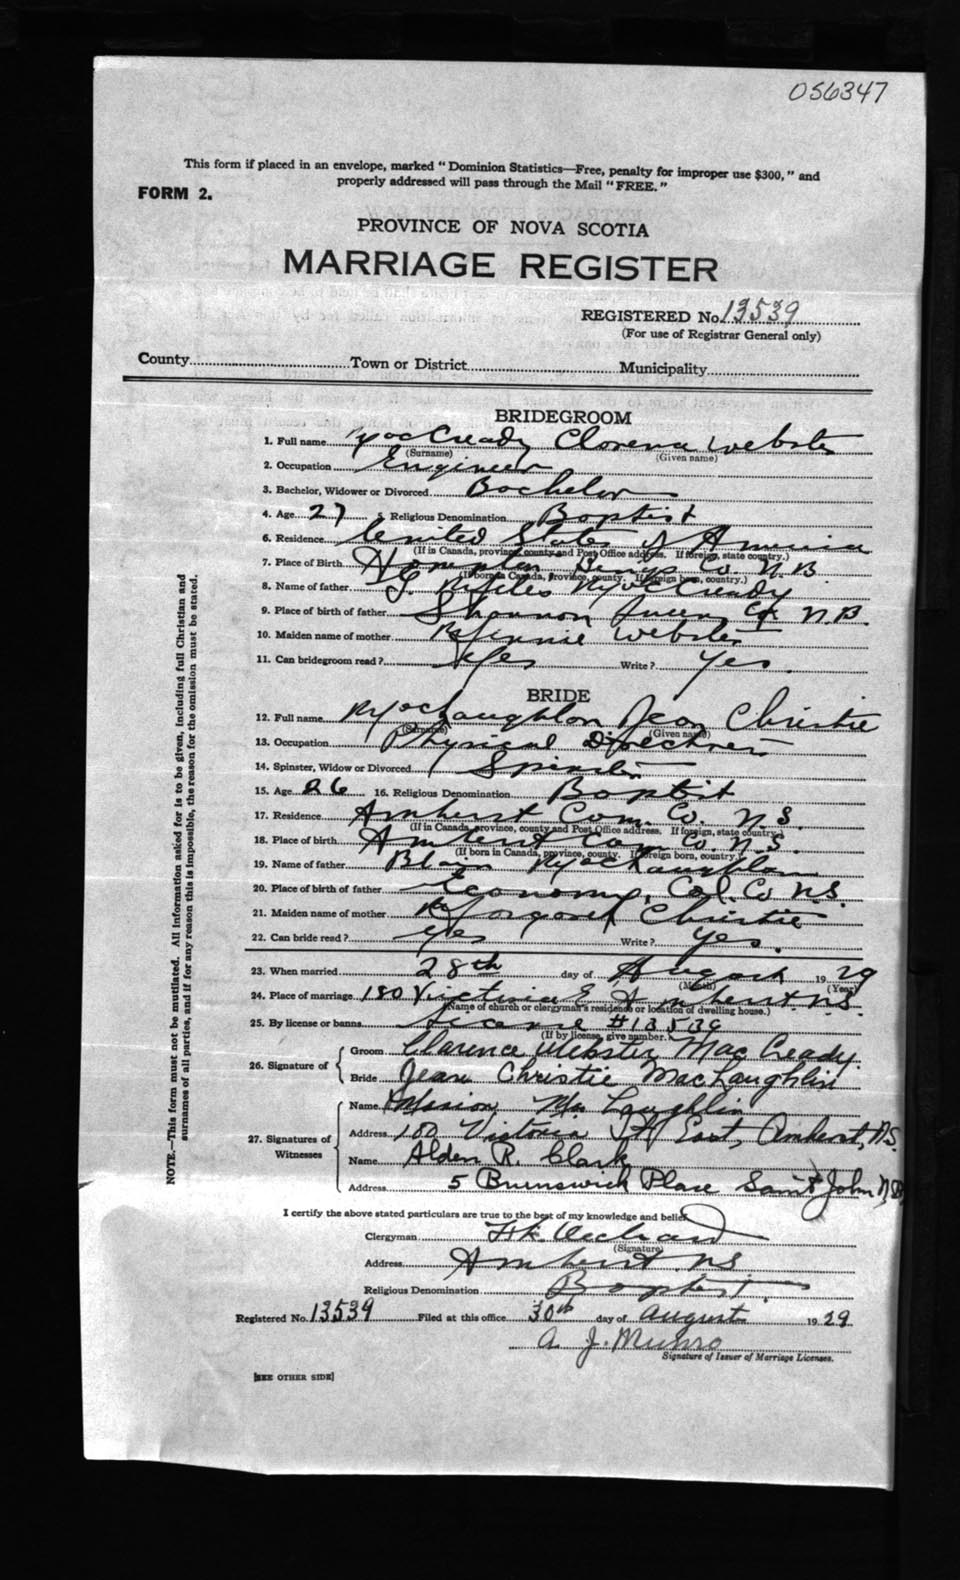 056347
This form if placed in an envelope, marked "Dominion Statistics—Free, penalty for improper use $300," and
properly addressed will pass through the Mail "FREE."
FORM 2.
PROVINCE OF NOVA SCOTIA
MARRIAGE REGISTER
REGISTERED No. 13539
(For use of Registrar General only)
County Town or District Municipality
BRIDEGROOM
1. Full name MacCready Clarence Webster
(Surname) (Given name)
2. Occupation Engineer
3. Bachelor, Widower or Divorced Bachelor
4. Age 27 5. Religious Denomination Baptist
6. Residence United States of America
(If in Canada, province, county and Post Office address. If foreign, state country.)
7. Place of Birth Hampton Kings Co. N.B
(If born in Canada, province, county. If foreign born, country.)
8. Name of father MacCready
9. Place of birth of father Shannon Queen Co N.B.
10. Maiden name of mother Minnie Webster
11. Can bridegroom read? Yes Write? Yes.
BRIDE
12. Full name MacLaughlon Jean Christie
(Surname) (Given name)
13. Occupation Physical Directress
14. Spinster, Widow or Divorced Spinster
15. Age 26 16. Religious Denomination Baptist
17. Residence Amherst Cum. Co. N.S.
(If in Canada, province, county and Post Office address. If foreign, state country.)
18. Place of birth Amherst Cum Co. N.S.
(If born in Canada, province, county. If foreign born, country.)
19. Name of father Blair MacLaughlon
20. Place of birth of father Economy, Col. Co N.S.
21. Maiden name of mother Margaret Christie
22. Can bride read? Yes Write? Yes.
23. When married 28th day of August 1929
(Month) (Year)
24. Place of marriage 180 Victoria E Amherst N.S.
(Name of church or clergyman's residence or location of dwelling house.)
25. By license or banns License #13539
(If by license, give number.)
26. Signature of Groom Clarence Webster MacCready.
Bride Jean Christie MacLaughlin
27. Signatures of Witnesses Name Marion MacLaughlin
Address 180 Victoria St East, Amherst, N.S.
Name Alden R. Clark
Address 5 Brunswick Place Saint John N.B
I certify the above stated particulars are true to the best of my knowledge and belief.
Clergyman
(Signature)
Address Amherst N.S
Religious Denomination Baptist.
Registered No. 13539 Filed at this office 30th day of August 1929
A. J. Munro
Signature of Issuer of Marriage Licenses.
[SEE OTHER SIDE]
NOTE.—This form must not be mutilated. All information asked for is to be given, including full Christian and
surnames of all parties, and if for any reason this is impossible, the reason for the omission must be stated.